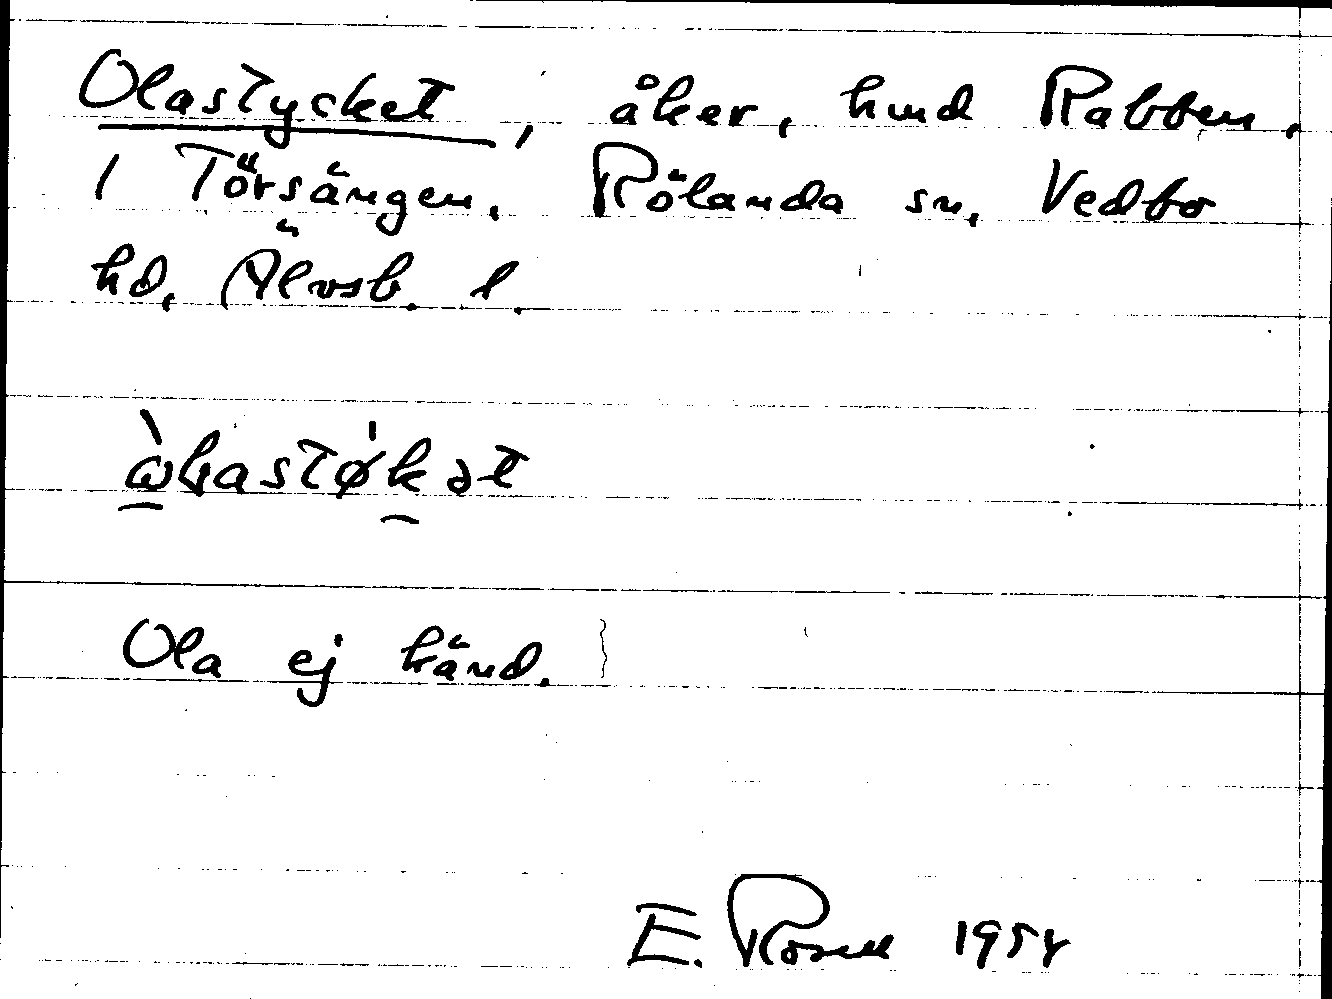 Olastycket, åker, hmd Rabben,
1 Törsängen, Rölanda sn, Vedbo
hd, Älvsb. l.
Ola ej känd.
E. Rosell 1954